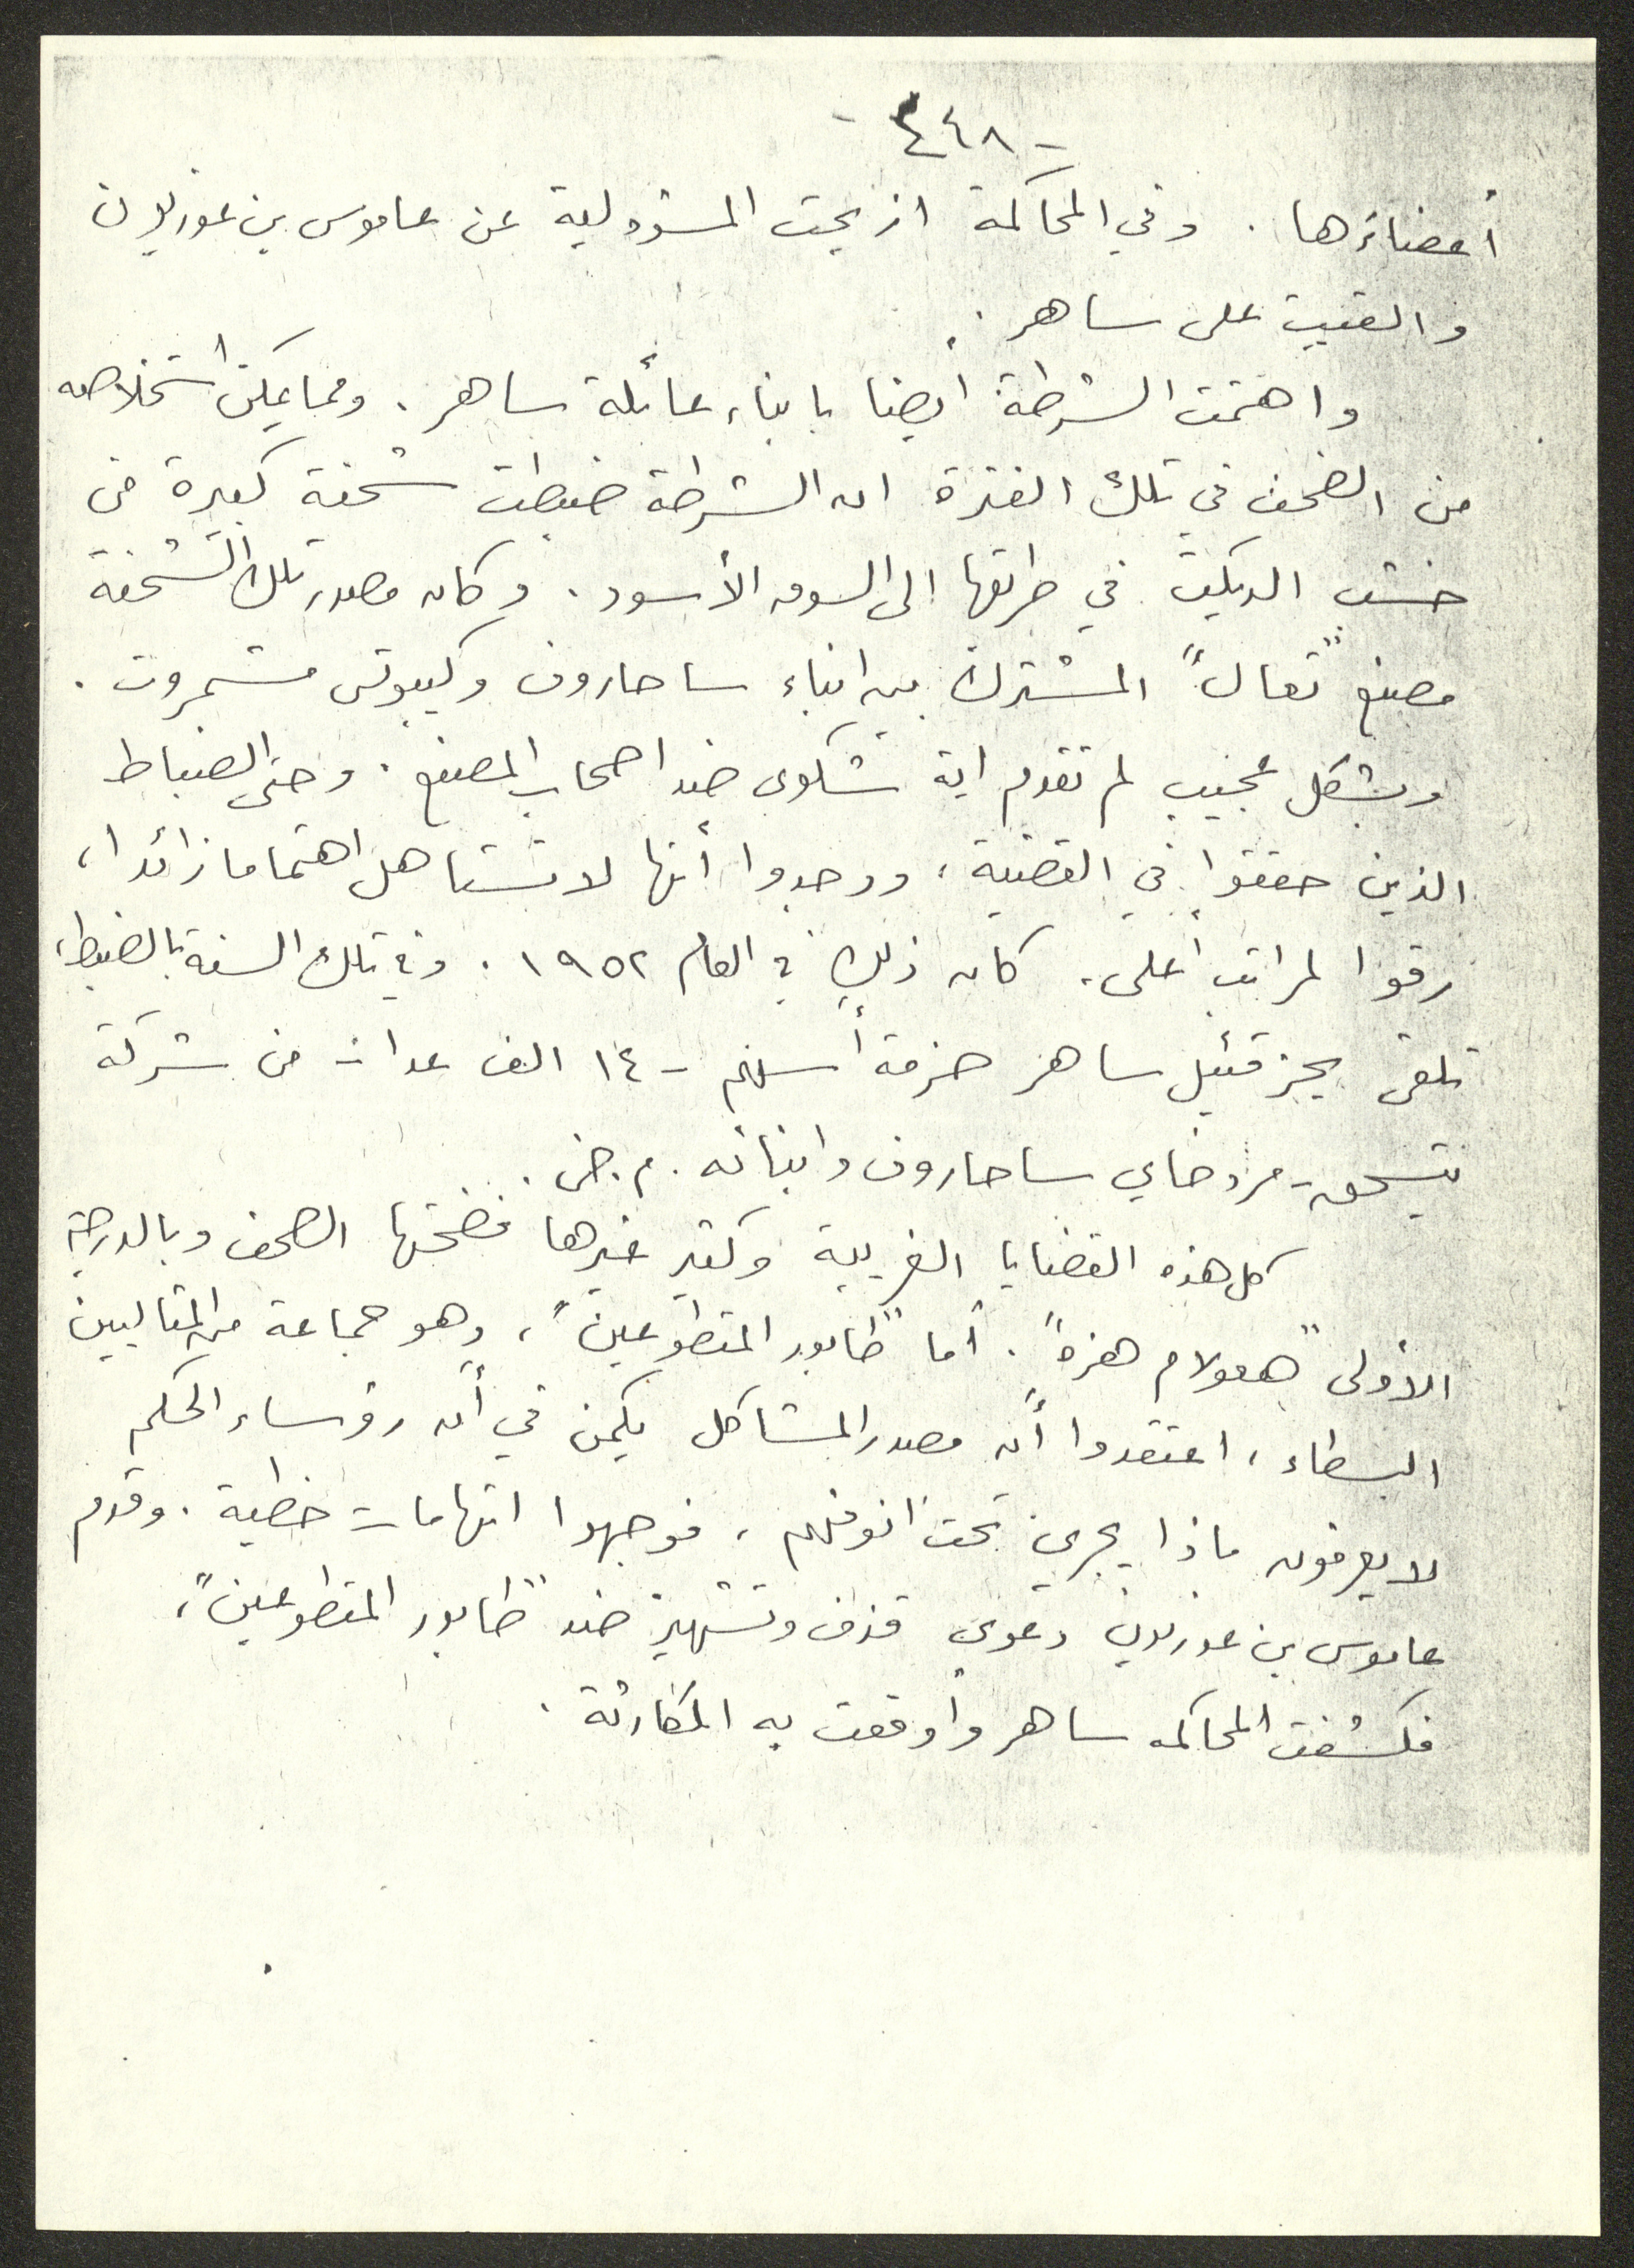 - ٤٤٨ -
أعضاؤها . وفي المحاكمة ازيحت المسؤولية عن عاموس بن غوريون
والقيت على ساهر .
واهتمت الشرطة أيضا بابناء عائلة ساهر . ومما يمكن استخلاصه
من الصحف في تلك الفترة ان الشرطة ضبطت شحنة كبيرة من
خشب الديكت في طريقها الى السوق الأسود . وكان مصدر تلك الشحنة
مصنع "تعال" المشترك بين ابناء ساحاروف وكيبوتس مشمروت .
وبشكل عجيب لم تقدم اية شكوى ضد اصحاب المصنع . وحتى الضباط
الذين حققوا في القضية ، ووجدوا أنها لا تستاهل اهتماما زائدا ،
رقوا لمراتب أعلى . كان ذلك في العام ١٩٥٢ . وفي تلك السنة بالضبط ،
تلقى يحزقئيل ساهر حزمة أسهم - ١٤ الف عدا - من شركة
يتسحق - مردخاي ساحاروف وابنائه . م . ض .
كل هذه القضايا الغريبة وكثير غيرها فضحتها الصحف وبالدرجة
الأولى "هعولام هزه" . أما "طابور المتطوعين" ، وهو جماعة من المثاليين
البسطاء ، اعتقدوا أن مصدر المشاكل يكمن في أن رؤساء الحكم
لا يعرفون ماذا يجري تحت انوفهم ، فوجهوا اتهامات خطية . وقدم
عاموس بن غوريون دعوى قذف وتشهير ضد "طابور المتطوعين" ،
فكشفت المحاكمه ساهر وأوقعت به الكارثة .